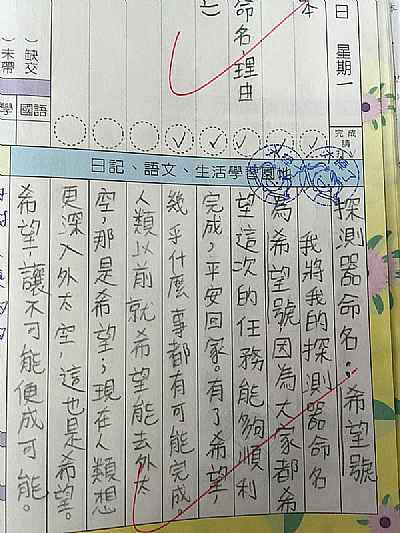 日 星期一
本
命名,理由
缺交
未帶
國語
學
完成請打✓
日記、語文、生活學習園地
探測器命名:希望號
我將我的探測器命名
為希望號因為大家都希
望這次的任務能夠順利
完成,平安回家。有了希望,
幾乎什麼事都有可能完成。
人類以前就希望能去外太
空,那是希望;現在人類想
更深入外太空,這也是希望。
希望,讓不可能便成可能。